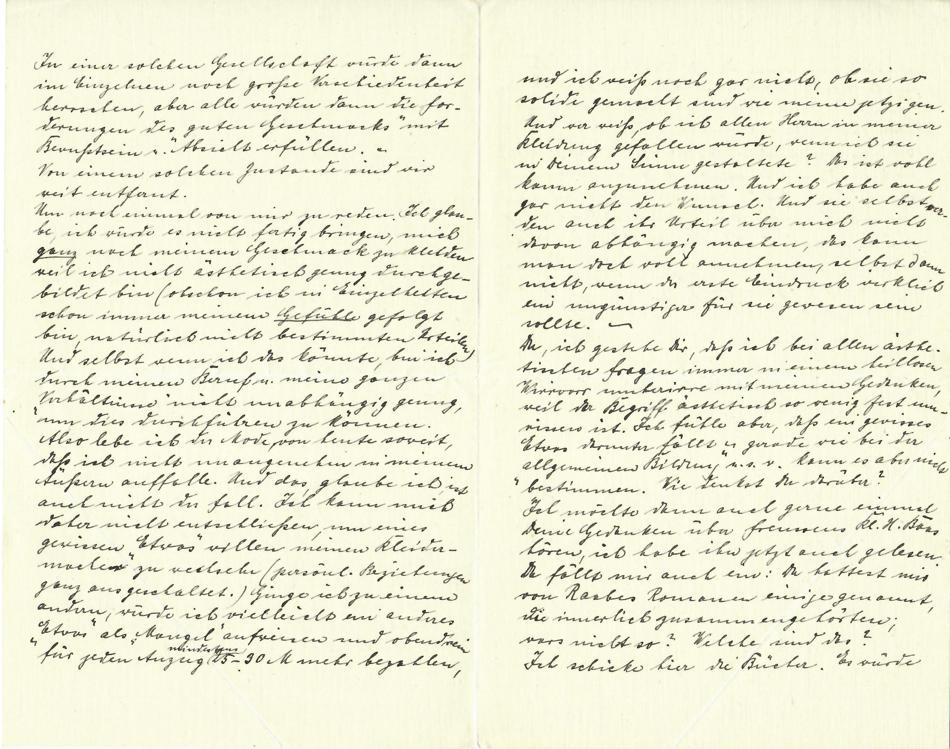 In einer solchen Gesellschaft würde dann
im Einzelnen noch große Verschiedenheit
herrschen, aber alle würden dann die „For-
derungen des guten Geschmacks" mit
Bewußtsein u. Absicht erfüllen. –
Von einem solchen Zustande sind wir
weit entfernt.
Um noch einmal von mir zu reden. Ich glau-
be, ich würde es nicht fertig bringen, mich
ganz nach meinem Geschmack zu kleiden
weil ich nicht ästhetisch genug durchge-
bildet bin (obschon ich in Einzelheiten
schon immer meinem Gefühle gefolgt
bin, natürlich nicht bestimmten Urteilen)
Und selbst wenn ich das könnte, bin ich
durch meinen Beruf u. meine ganzen
Verhältnisse nicht unabhängig genug,
um dies durchführen zu können.
Also lebe ich die Mode von heute soweit,
daß ich nicht unangenehm in meinem
Äußern auffalle. Und das, glaube ich, ist
auch nicht der Fall. Ich kann mich
daher nicht entschließen, um eines
gewissen „Etwas" willen meinen Kleider-
macher zu wechseln (persönl. Beziehungen
ganz ausgeschaltet.) Ginge ich zu einem
andern, würde ich vielleicht ein anderes
„Etwas" als „Mangel" aufweisen und obendrein
für jeden Anzug mindestens 25–30 M mehr bezahlen,
und ich weiß noch gar nicht, ob sie so
solide gemacht sind wie meine jetzigen.
Und wer weiß, ob ich allen Herrn in meiner
Kleidung gefallen würde, wenn ich sie
in Deinem Sinne gestaltete? Das ist wohl
kaum anzunehmen. Und ich habe auch
gar nicht den Wunsch. Und sie selbst wer-
den auch ihr Urteil über mich nicht
davon abhängig machen, das kann
man doch wohl annehmen, selbst dann
nicht, wenn der erste Eindruck wirklich
ein ungünstiger für sie gewesen sein
sollte. –
Du, ich gestehe Dir, daß ich bei allen ästhe-
tischen Fragen immer in einem heillosen
Wirrwarr umherirre mit meinen Gedanken,
weil der Begriff ästhetisch so wenig fest um-
rissen ist. Ich fühle aber, daß ein gewisses
Etwas darunter fällt gerade wie bei der
„allgemeinen Bildung" u.s.w. kann es aber nicht
bestimmen. Wie denkst du darüber?
Ich möchte dann auch gerne einmal
Deine Gedanken über Frenssens Kl. H. Baas
hören, ich habe ihn jetzt auch gelesen.
Da fällt mir auch ein: Du hattest mir
von Raabes Romanen einige genannt,
die innerlich zusammengehörten;
wars nicht so? Welche sind das?
Ich schicke hier die Bücher. Es würde